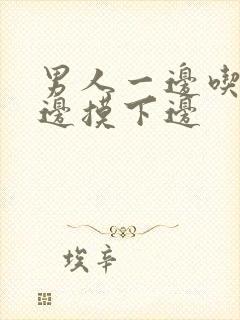 男人一邊喫
邊摸下邊
埃辛